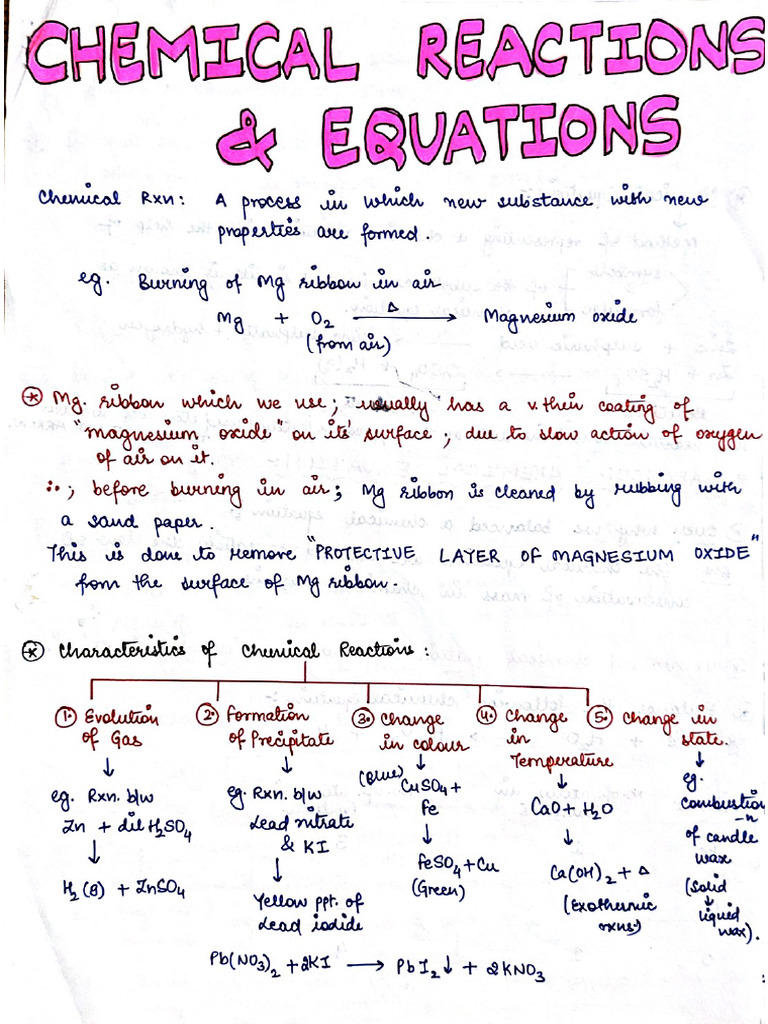 CHEMICAL REACTIONS
& EQUATIONS
Chemical Rxn: A process in which new substance with new
properties are formed.
eg. Burning of Mg ribbon in air
Mg + O₂ —Δ→ Magnesium oxide
(from air)
* Mg. ribbon which we use; usually has a v. thin coating of
"magnesium oxide" on its' surface; due to slow action of oxygen
of air on it.
∴; before burning in air; Mg ribbon is cleaned by rubbing with
a sand paper.
This is done to remove "PROTECTIVE LAYER OF MAGNESIUM OXIDE"
from the surface of Mg ribbon.
* Characteristics of Chemical Reactions:
1. Evolution
of Gas
↓
eg. Rxn. b/w
Zn + dil H₂SO₄
↓
H₂(g) + ZnSO₄
2. Formation
of Precipitate
↓
eg. Rxn b/w
Lead nitrate
& KI
↓
Yellow ppt. of
Lead iodide
Pb(NO₃)₂ + 2KI → PbI₂↓ + 2KNO₃
3. Change
in colour
↓
(Blue) CuSO₄ +
Fe
↓
FeSO₄ + Cu
(Green)
4. Change
in
Temperature
↓
CaO + H₂O
↓
Ca(OH)₂ + Δ
(Exothermic
rxns)
5. Change in
state.
↓
eg.
Combustion
of candle
wax
(Solid
↓
liquid
wax).